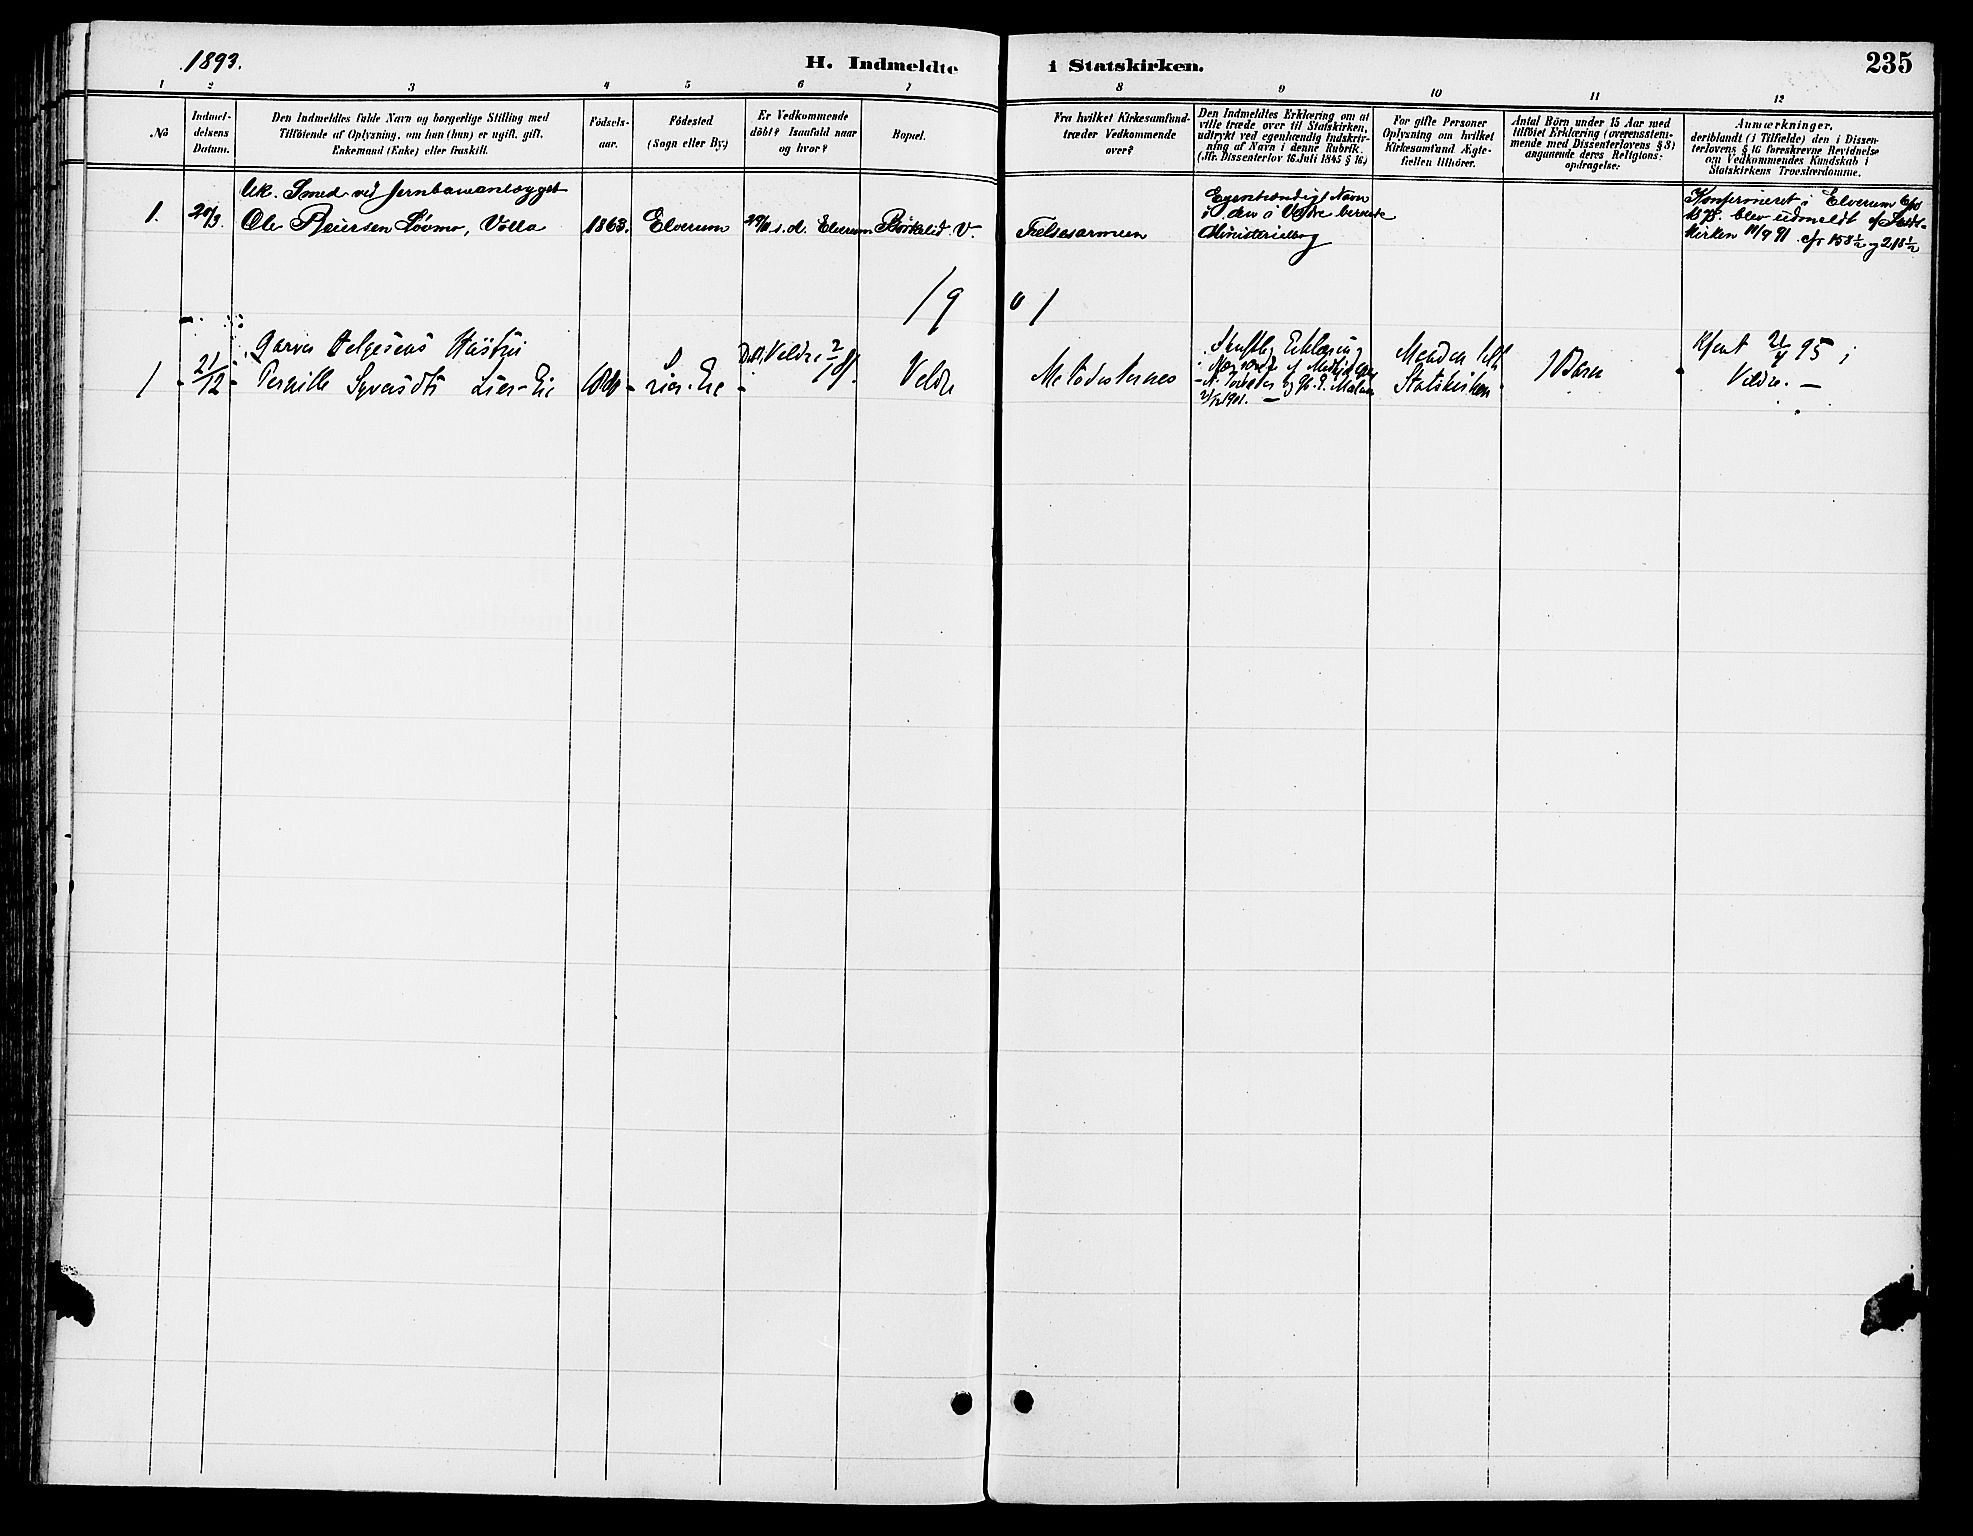 1893.
H. Indmeldte i Statskirken.
235
1 2 3 4 5 6 7 8 9 10 11 12
No
Indmel-
delsens
Datum.
Den Indmeldtes fulde Navn og borgerlige Stilling med
Tilföiende af Oplysning, om han (hun) er ugift, gift,
Enkemand (Enke) eller fraskilt.
Födsels-
aar.
Födested
(Sogn eller By.)
Er Vedkommende
döbt? Isaafald naar
og hvor?
Bopæl.
Fra hvilket Kirkesamfund-
træder Vedkommende
over?
Den Indmeldtes Erklæring om at
ville træde over til Statskirken,
udtrykt ved egenhændig Indskriv-
ning af Navn i denne Rubrik.
(Jfr. Dissenterlov 16. Juli 1845 § 16.)
For gifte Personer
Oplysning om hvilket
Kirkesamfund Ægte-
fællen tilhörer.
Antal Börn under 15 Aar med
tilföiet Erklæring (overensstem-
mende med Dissenterlovens § 8)
angaaende deres Religions-
opdragelse:
Anmærkninger,
deriblandt (i Tilfælde) den i Dissen-
terlovens § 16 foreskrevne Bevidnelse
om Vedkommendes Kundskab i
Statskirkens Troeslærdomme.
Uk. Smed ved Jernbaneanlægget
1. 20/9. Ole Pedersen Lövmo, Volla 1863. Elverum 29/11 s. d. Elverum V.
Frelsesarmeen
Egenhændigt Navn
i den i Vedre beroende
Ministerialbog
Konfirmeret i Elverum
1878. blev udmeldt af Stats-
kirken 11/9 91 cfr 158 1/2 og 218 1/2
19 01
Garver Helgesens Hustru
1 21/12 Pernille Syversdtr Lier-Eie
Veldre
Veldre
Metodisternes
Skriftlig Erklæring
21/12 1901.
Statskirken
1 Barn
Kfent 21/4 95 i
Veldre. —